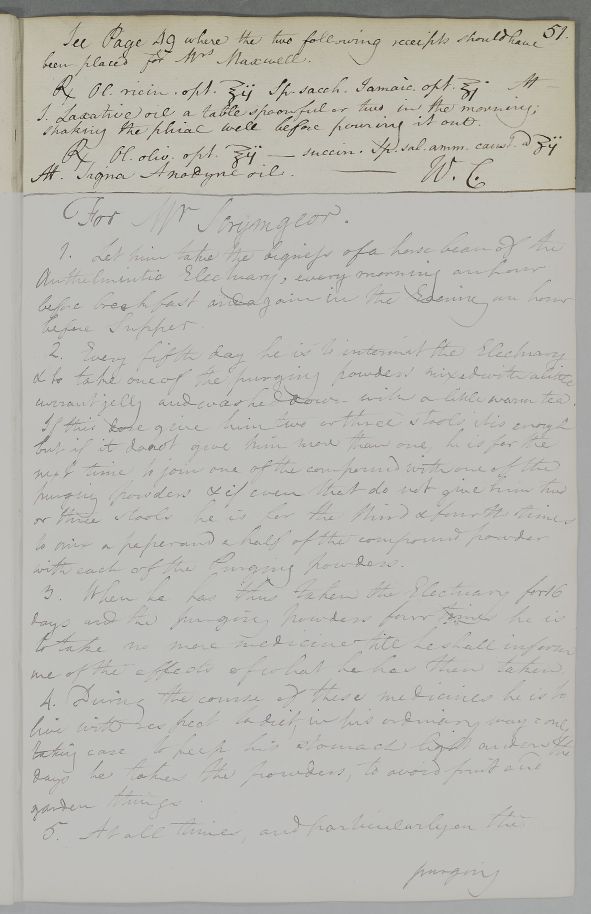 51.
See Page 49 where the two following receipts should have
been placed for Mrs Maxwell.
℞ Ol. ricin. opt. ℥ij Sp. sacch. Jamaic. opt. ℥j M
S. Laxative oil a table spoonful or two in the morning;
shaking the phial well before pouring it out.
℞ Ol. oliv. opt. ℥ij — succin. Sp. sal. amm. caust. a ℥ij
M. Signa Anodyne oil. — W. C.
For Mr Scrymgeor.
1. Let him take the bigness of a horse bean of the
Anthelmintic Electuary, every morning an hour
before breakfast and again in the Evening an hour
before Supper.
2. Every fifth day he is to intermit the Electuary
& to take one of the purging powders mixed with a little
currant jelly and washed down with a little warm tea.
If this dose give him two or three stools, it is enough
but if it do not give him more than one, he is for the
next time to join one of the compound with one of the
purging powders & if even that do not give him two
or three stools he is for the third & fourth times
to mix a paper and a half of the compound powder
with each of the Purging powders.
3. When he has thus taken the Electuary for 16
days and the purging Powders four times he is
to take no more medicine till he shall inform
me of the effects of what he has then taken.
4. During the course of these medicines he is to
live with respect to diet, in his ordinary way only
taking care to keep his stomach light and on the
days he takes the powders, to avoid fruit and
garden things.
5. At all times, and particularly on the
purging